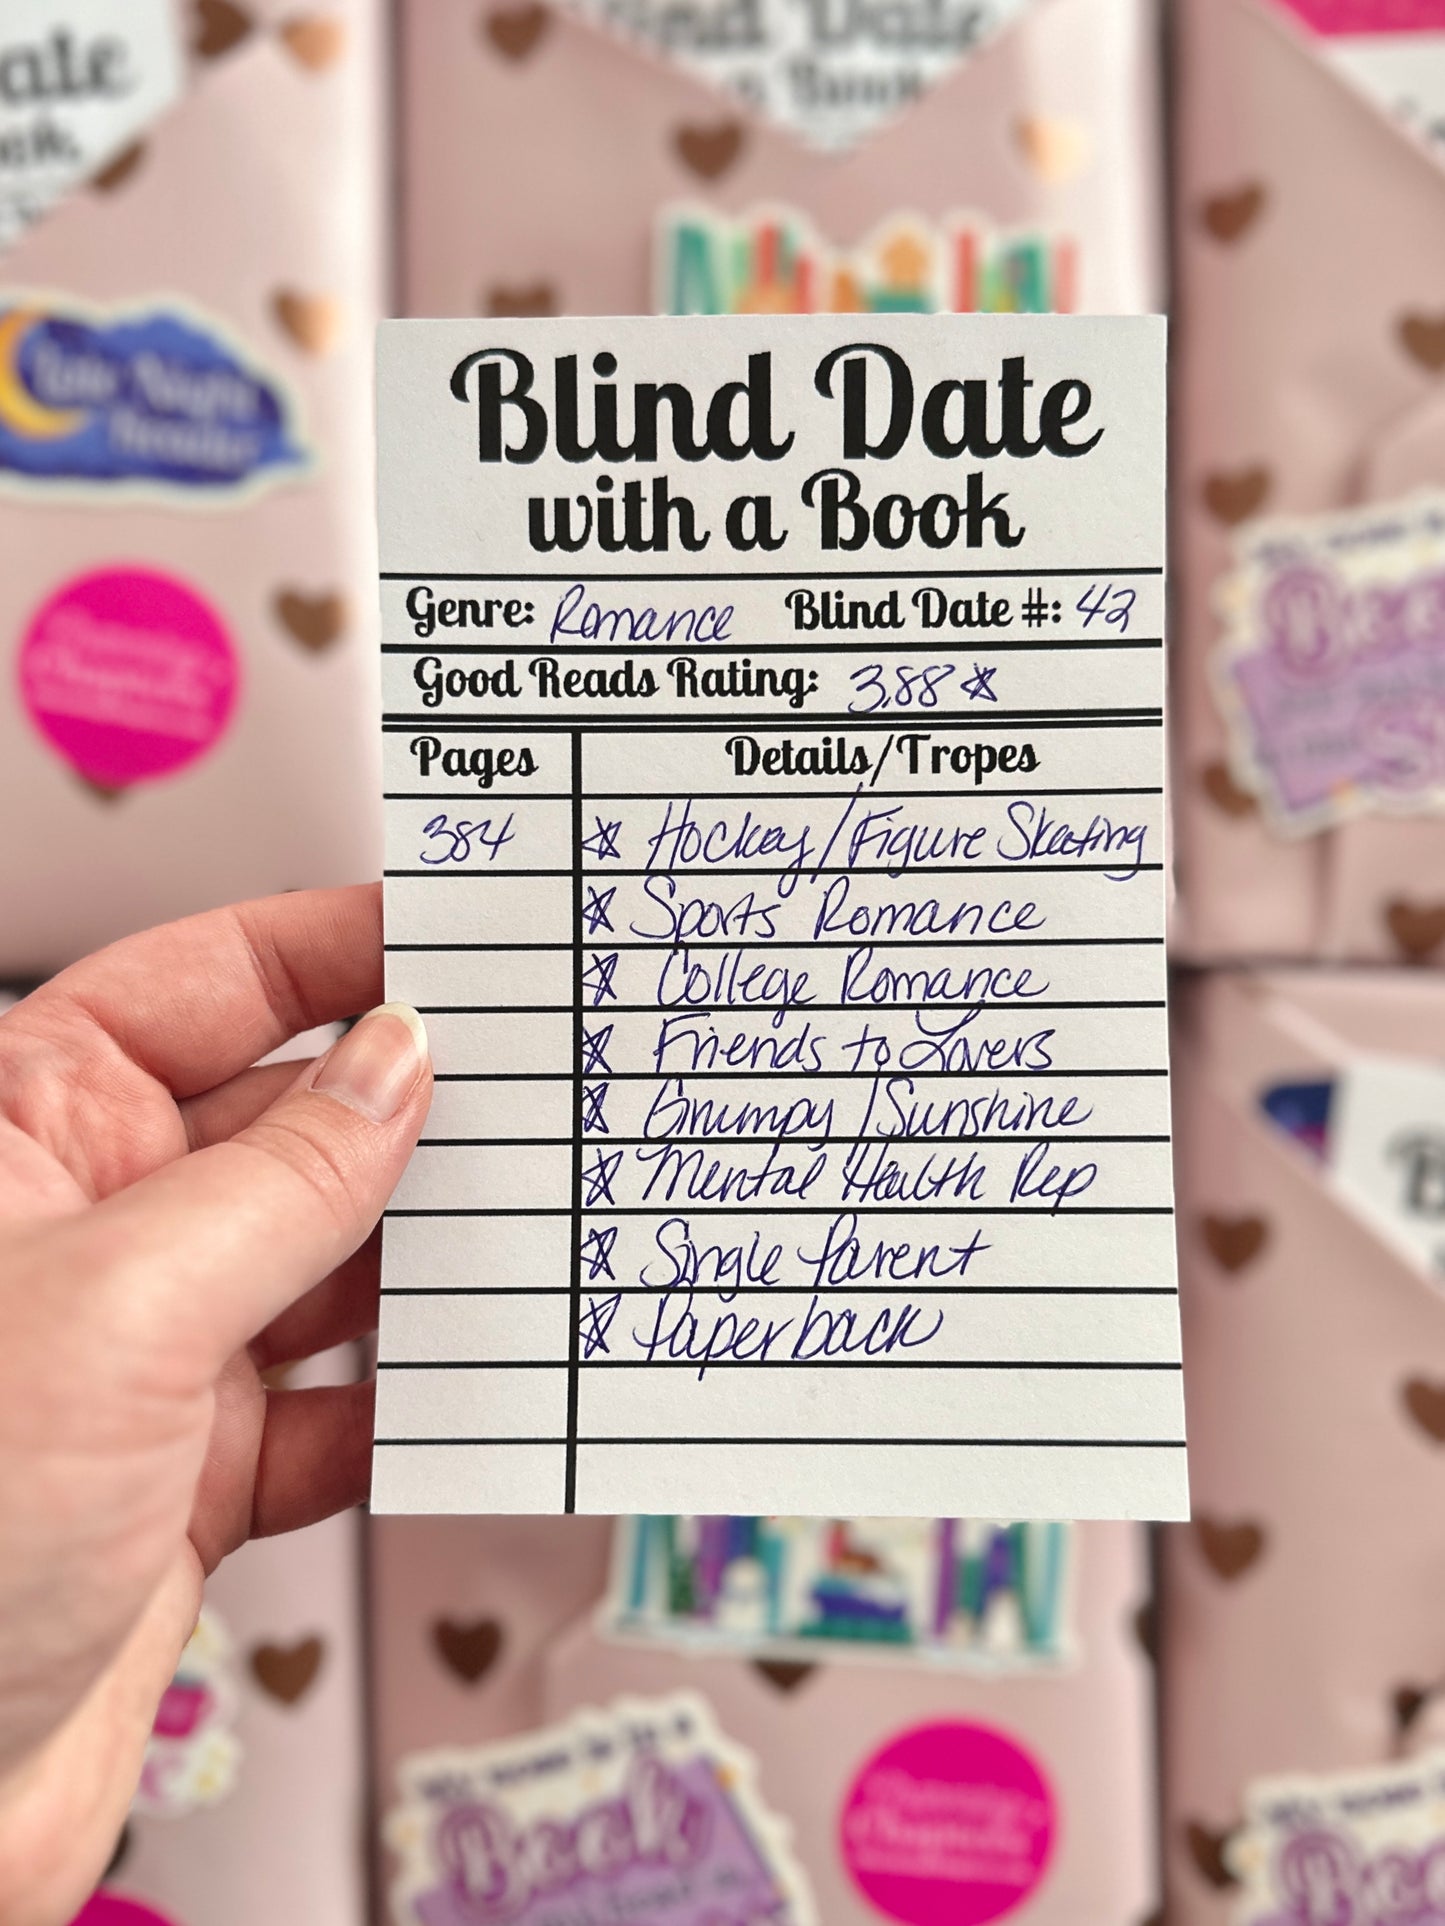 ate
Blind Date
Book
Late Night
Reader
Blind Date
with a Book
Genre: Romance Blind Date #: 42
Good Reads Rating: 3.88 ☆
Pages Details/Tropes
384 ☆ Hockey/Figure Skating
☆ Sports Romance
☆ College Romance
☆ Friends to Lovers
☆ Grumpy/Sunshine
☆ Mental Health Rep
☆ Single Parent
☆ Paperback
Book